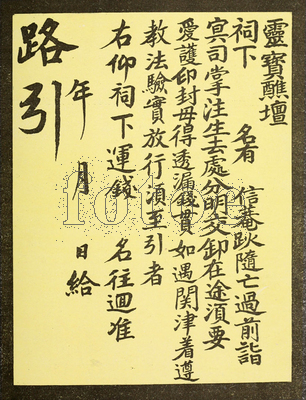 靈寶醮壇
祠下 名有 信菴趺隨亡過前詣
冥司掌注生去處分明交卸在途須要
愛護印封毋得透漏錢貫如遇関津着遵
教法驗實放行須至引者
右仰祠下運錢 名往迴准
年 月 日給
路引